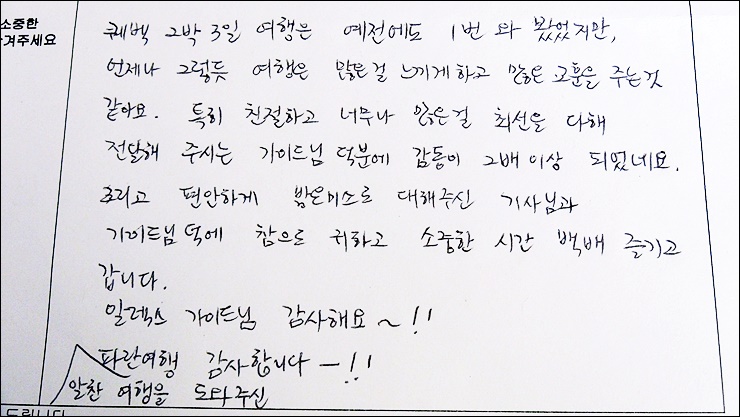 소중한
겨주세요
퀘벡 2박 3일 여행은 예전에도 1번 와 봤었지만,
언제나 그렇듯 여행은 많은걸 느끼게하고 많은 교훈을 주는것
같아요. 특히 친절하고 너무나 많은걸 최선을 다해
전달해 주시는 가이드님 덕분에 감동이 2배 이상 되었네요.
그리고 편안하게 밝은미소로 대해주신 기사님과
가이드님 덕에 참으로 귀하고 소중한 시간 백배 즐기고
갑니다.
알렉스 가이드님 감사해요~!!
파란여행 감사합니다ー!!
알찬 여행을 도와주신
드립니다